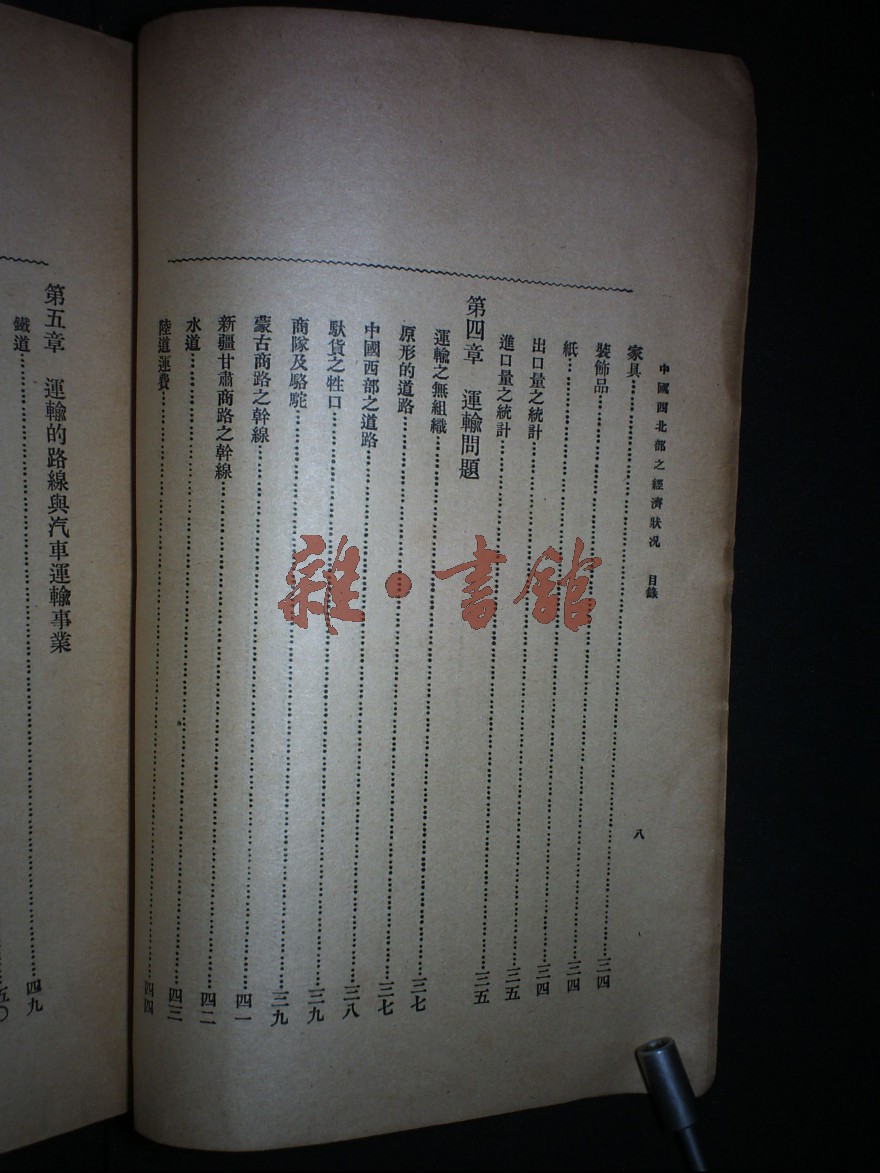 中國西北部之經濟狀況 目錄 八
家具……三四
裝飾品……三四
紙……三四
出口量之統計……三五
進口量之統計……三五
第四章 運輸問題
運輸之無組織……三七
原形的道路……三七
中國西部之道路……三八
馱貨之牲口……三九
商隊及駱駝……三九
蒙古商路之幹線……四一
新疆甘肅商路之幹線……四二
水道……四三
陸道運費……四四
第五章 運輸的路線與汽車運輸事業
鐵道……四九
五〇
雜·書館